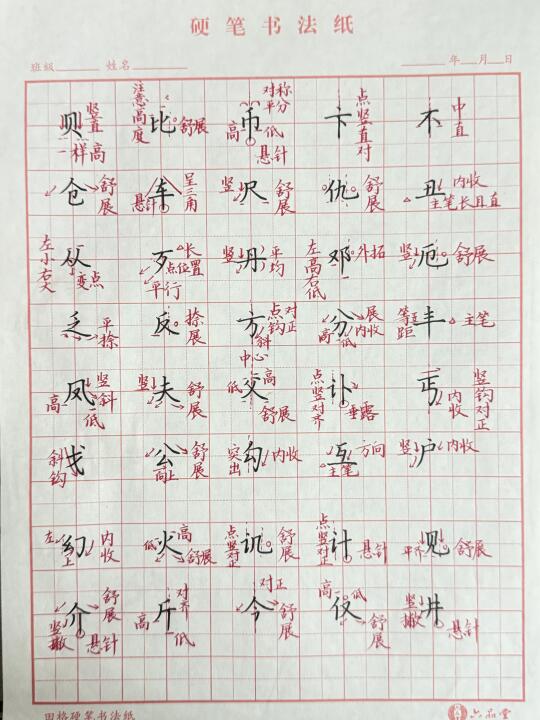 硬笔书法纸
班级 姓名 年 月 日
贝 竖直 一样高 比 注意高度 舒展 币 对称 平分 高 低 悬针 卞 点竖直对 不 中直
仓 舒展 车 呈三角 悬针 尺 竖 舒展 仇 舒展 丑 内收 主笔长且直
从 左小右大 变点 歹 长 点位置 平行 丹 竖 平均 邓 左高右低 外拓 厄 竖 舒展
乏 平捺 反 捺展 方 点钩对正 斜 中心 分 展 内收 高 低 丰 等距 主笔
凤 竖斜 高 低 夫 竖 舒展 父 低 高 舒展 讣 点竖对齐 垂露 丐 内收 竖钩对正
戈 斜钩 公 舒展 向上 勾 突出 内收 互 方向 主笔 户 竖 内收
幻 左 上 内收 火 高 低 舒展 讥 点竖对正 舒展 计 点竖对正 悬针 见 平齐 舒展
介 舒展 竖撇 悬针 斤 对齐 高 低 今 对正 舒展 仅 高 低 舒展 井 竖撇 悬针
田格硬笔书法纸 六品堂